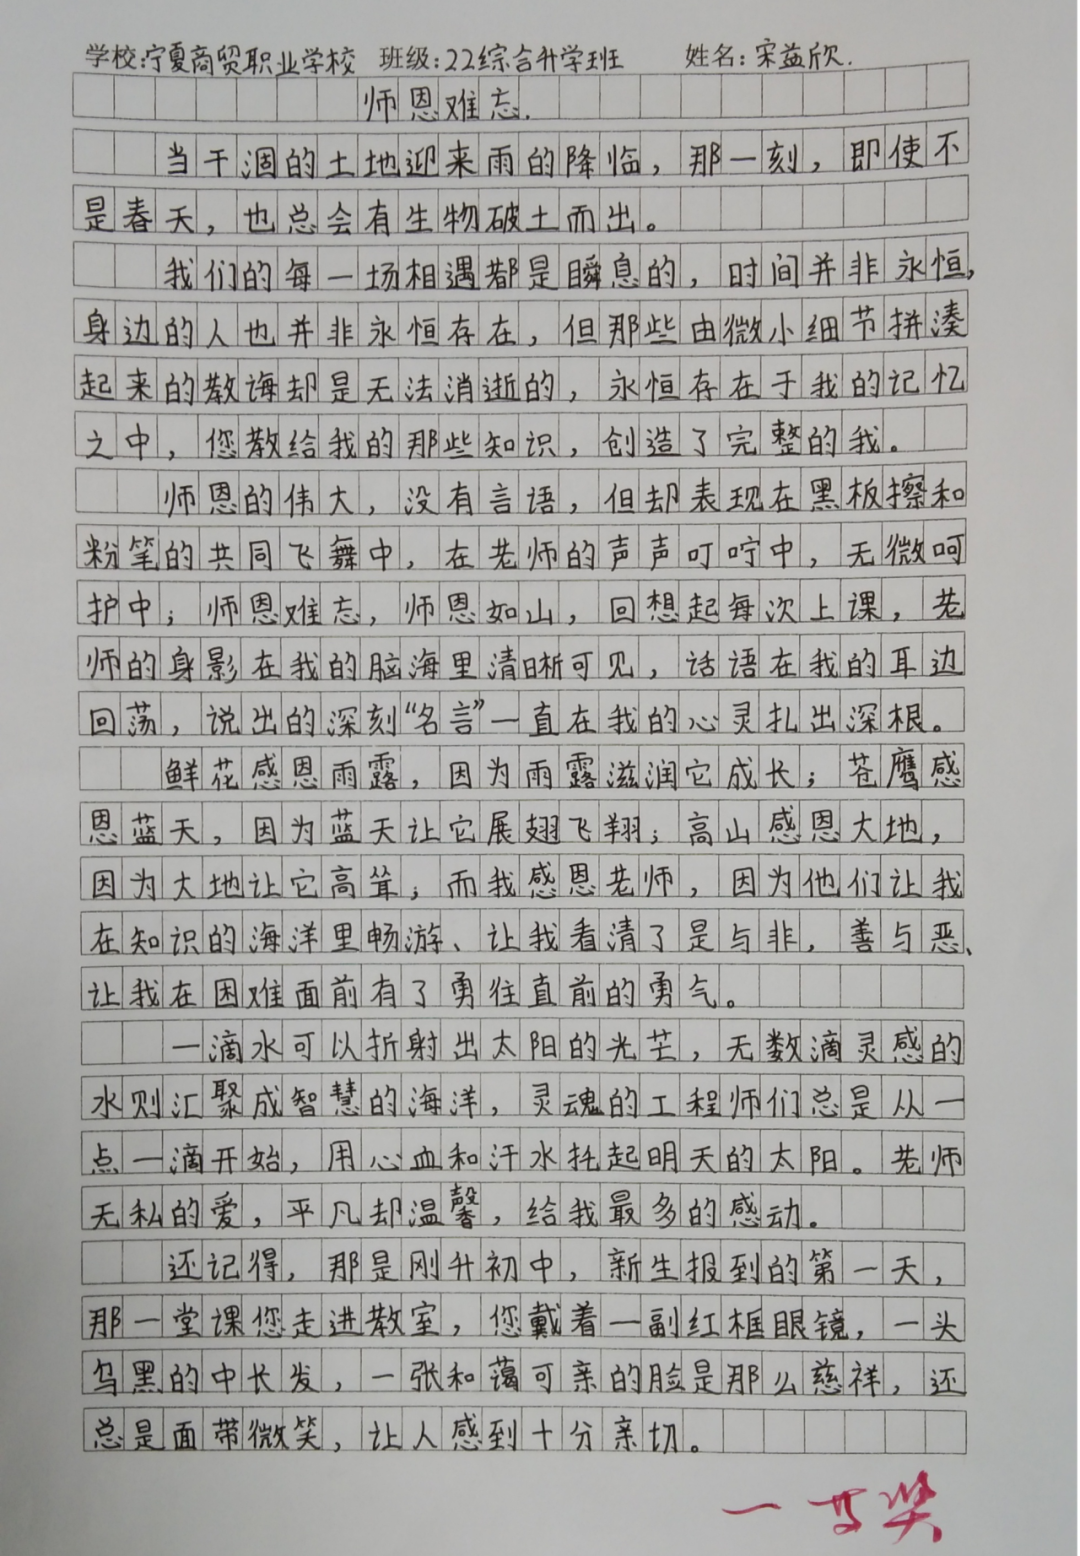 学校:宁夏商贸职业学校 班级:22综合升学班 姓名:宋益欣.
师恩难忘.
当干涸的土地迎来雨的降临，那一刻，即使不
是春天，也总会有生物破土而出。
我们的每一场相遇都是瞬息的，时间并非永恒，
身边的人也并非永恒存在，但那些由微小细节拼凑
起来的教诲却是无法消逝的，永恒存在于我的记忆
之中，您教给我的那些知识，创造了完整的我。
师恩的伟大，没有言语，但却表现在黑板擦和
粉笔的共同飞舞中，在老师的声声叮咛中，无微呵
护中；师恩难忘，师恩如山，回想起每次上课，老
师的身影在我的脑海里清晰可见，话语在我的耳边
回荡，说出的深刻“名言”一直在我的心灵扎出深根。
鲜花感恩雨露，因为雨露滋润它成长；苍鹰感
恩蓝天，因为蓝天让它展翅飞翔；高山感恩大地，
因为大地让它高耸；而我感恩老师，因为他们让我
在知识的海洋里畅游、让我看清了是与非，善与恶、
让我在困难面前有了勇往直前的勇气。
一滴水可以折射出太阳的光芒，无数滴灵感的
水则汇聚成智慧的海洋，灵魂的工程师们总是从一
点一滴开始，用心血和汗水托起明天的太阳。老师
无私的爱，平凡却温馨，给我最多的感动。
还记得，那是刚升初中，新生报到的第一天，
那一堂课您走进教室，您戴着一副红框眼镜，一头
乌黑的中长发，一张和蔼可亲的脸是那么慈祥，还
总是面带微笑，让人感到十分亲切。
一等奖